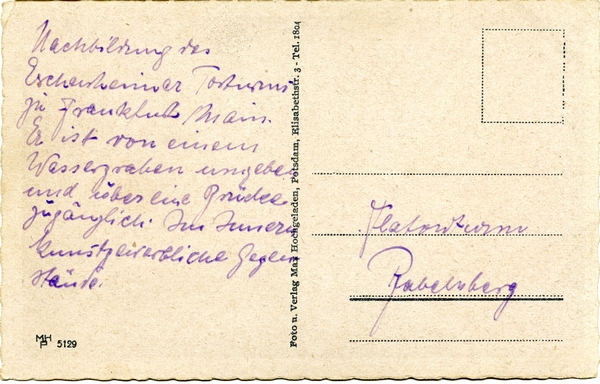 Nachbildung des
Eschersheimer Torturms
zu Frankfurt Main.
Er ist von einem
Wassergraben umgeben
und über eine Brücke
zugänglich. Im Innern
kunstgewerbliche Gegen
stände.
MH
P 5129
Foto u. Verlag Max Hochgeladen, Potsdam, Elisabethstr. 3 - Tel. 1804
Flatowturm
Babelsberg